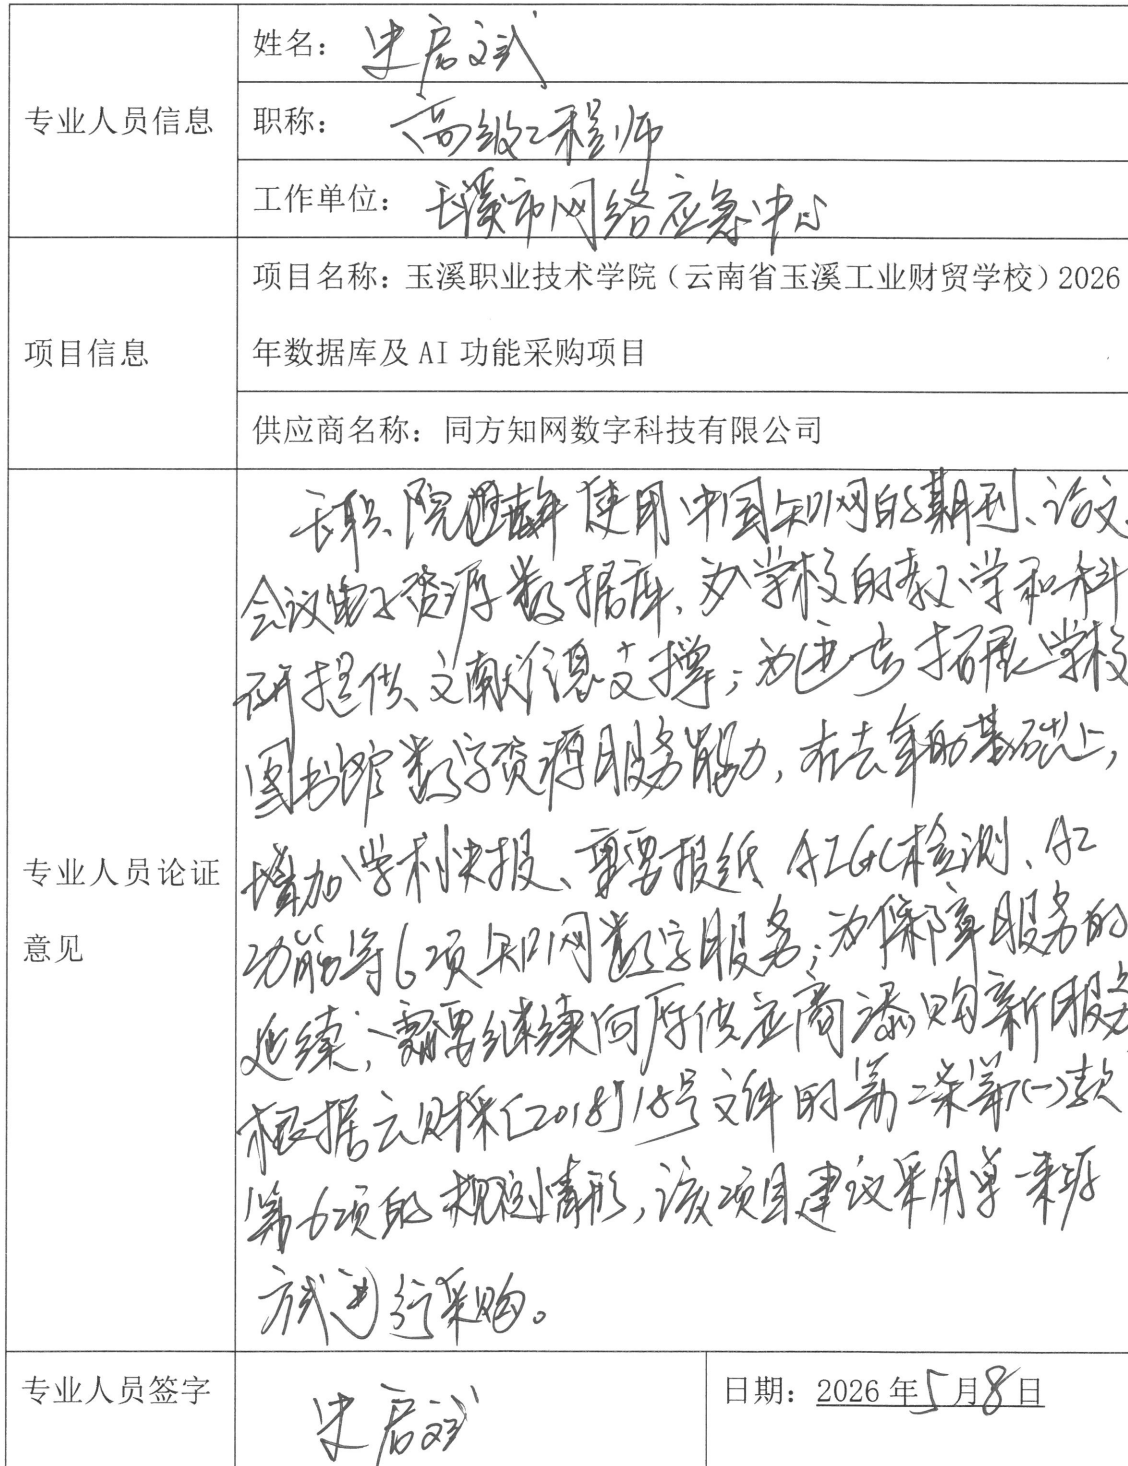 姓名：史启斌
专业人员信息
职称：高级工程师
工作单位：玉溪市网络应急中心
项目名称：玉溪职业技术学院（云南省玉溪工业财贸学校）2026
项目信息
年数据库及 AI 功能采购项目
供应商名称：同方知网数字科技有限公司
玉职院使用中国知网的期刊、论文、
会议电子资源数据库，为学校的教学和科
研提供文献信息支撑；为进一步拓展学校
图书馆数字资源服务能力，在去年的基础上，
增加学科快报、重要报纸、AIGC检测、AI
专业人员论证
功能等6项知网数字服务；为保障服务的
意见
延续，需要继续向原供应商添购新服务
根据云财采〔2018〕18号文件的第二条第(一)款
第6项的规定情形，该项目建议采用单一来源
方式进行采购。
专业人员签字
史启斌
日期：2026年5月8日